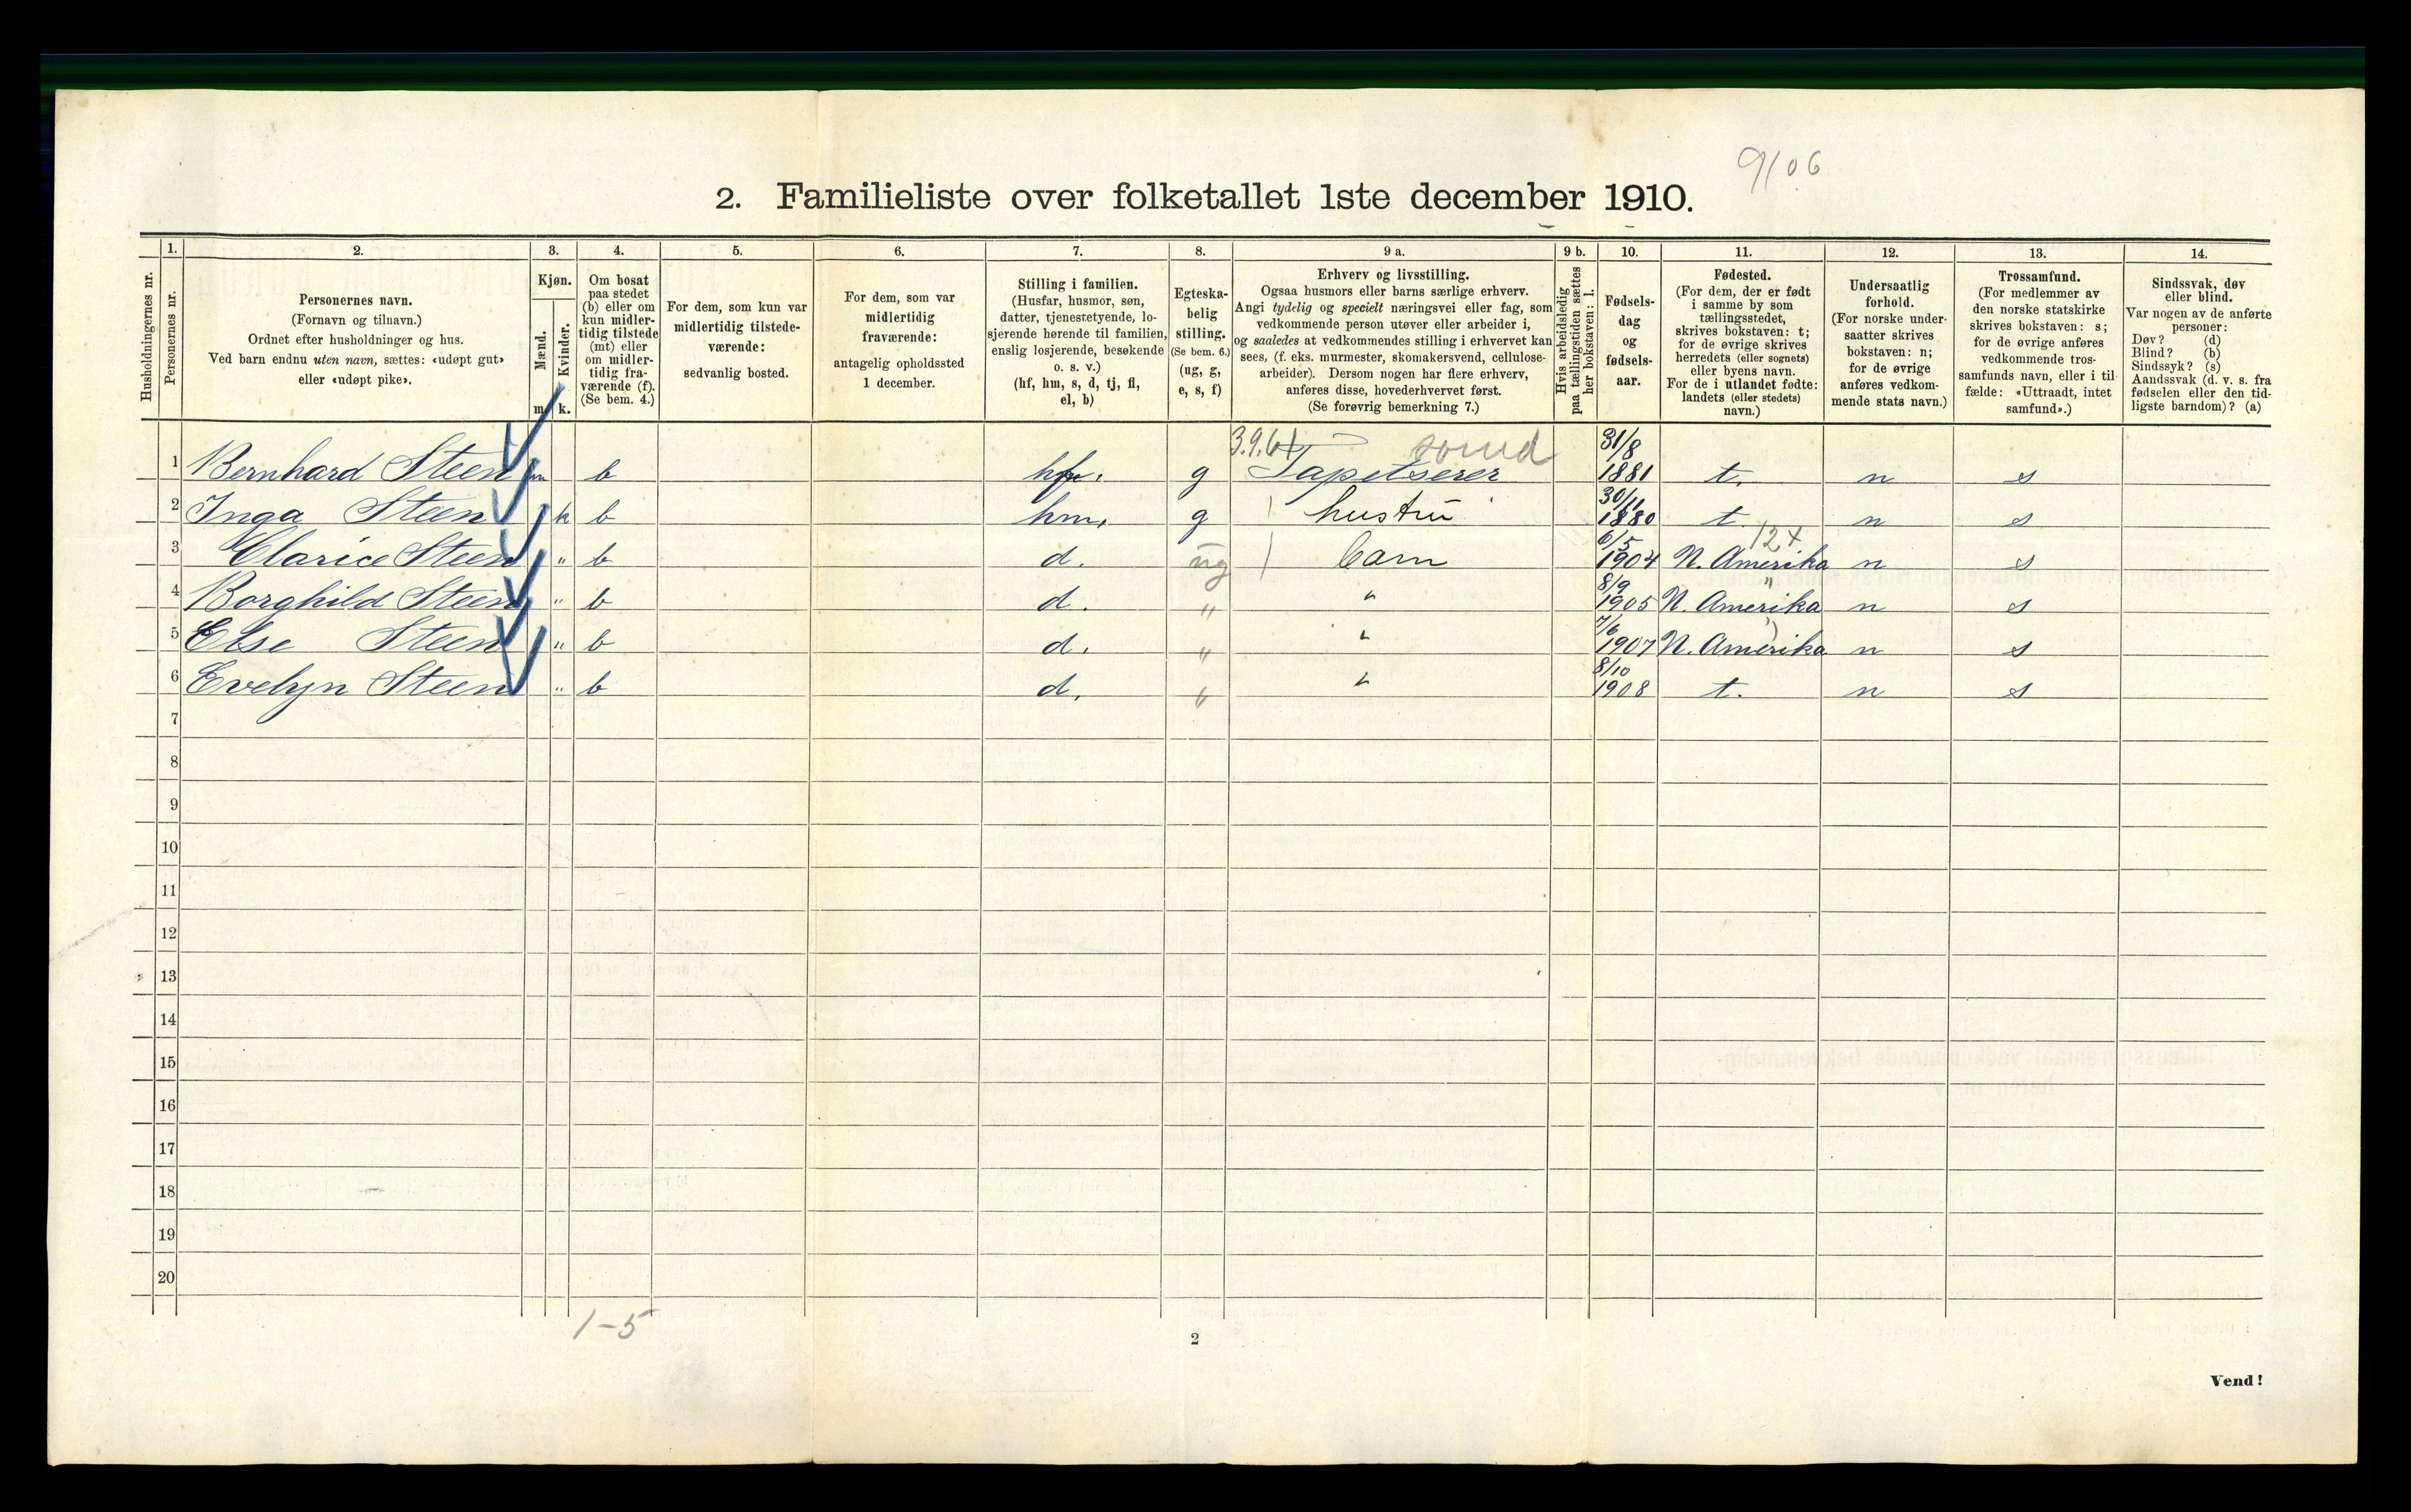 9/06
2. Familieliste over folketallet 1ste december 1910.
Husholdningernes nr.
1.
Personernes nr.
2.
Personernes navn.
(Fornavn og tilnavn.)
Ordnet efter husholdninger og hus.
Ved barn endnu uten navn, sættes: «udøpt gut»
eller «udøpt pike».
3.
Kjøn.
Mænd.
Kvinder.
m. k.
4.
Om bosat
paa stedet
(b) eller om
kun midler-
tidig tilstede
(mt) eller
om midler-
tidig fra-
værende (f).
(Se bem. 4.)
5.
For dem, som kun var
midlertidig tilstede-
værende:
sedvanlig bosted.
6.
For dem, som var
midlertidig
fraværende:
antagelig opholdssted
1 december.
7.
Stilling i familien.
(Husfar, husmor, søn,
datter, tjenestetyende, lo-
sjerende hørende til familien,
enslig losjerende, besøkende
o. s. v.)
(hf, hm, s, d, tj, fl,
el, b)
8.
Egteska-
belig
stilling.
(Se bem. 6.)
(ug, g,
e, s, f)
9 a.
Erhverv og livsstilling.
Ogsaa husmors eller barns særlige erhverv.
Angi tydelig og specielt næringsvei eller fag, som
vedkommende person utøver eller arbeider i,
og saaledes at vedkommendes stilling i erhvervet kan
sees, (f. eks. murmester, skomakersvend, cellulose-
arbeider). Dersom nogen har flere erhverv,
anføres disse, hovederhvervet først.
(Se forøvrig bemerkning 7.)
9 b.
Hvis arbeidsledig
paa tællingstiden sættes
her bokstaven: l.
10.
Fødsels-
dag
og
fødsels-
aar.
11.
Fødested.
(For dem, der er født
i samme by som
tællingsstedet,
skrives bokstaven: t;
for de øvrige skrives
herredets (eller sognets)
eller byens navn.
For de i utlandet fødte:
landets (eller stedets)
navn.)
12.
Undersaatlig
forhold.
(For norske under-
saatter skrives
bokstaven: n;
for de øvrige
anføres vedkom-
mende stats navn.)
13.
Trossamfund.
(For medlemmer av
den norske statskirke
skrives bokstaven: s;
for de øvrige anføres
vedkommende tros-
samfunds navn, eller i til-
fælde: «Uttraadt, intet
samfund».)
14.
Sindssvak, døv
eller blind.
Var nogen av de anførte
personer:
Døv? (d)
Blind? (b)
Sindssyk? (s)
Aandssvak (d. v. s. fra
fødselen eller den tid-
ligste barndom)? (a)
1 Bernhard Steen m b hf. g Tapetserer 31/8 1881 t. n s
2 Inga Steen k b hm. g hustru 30/11 1880 t. n s
3 Clarice Steen " b d. ug barn 6/5 1904 N. Amerika n s
4 Borghild Steen " b d. " " 8/9 1905 N. Amerika n s
5 Else Steen " b d. " " 7/6 1907 N. Amerika n s
6 Evelyn Steen " b d. " " 8/10 1908 t. n s
7
8
9
10
11
12
13
14
15
16
17
18
19
20
1-5
2
Vend!